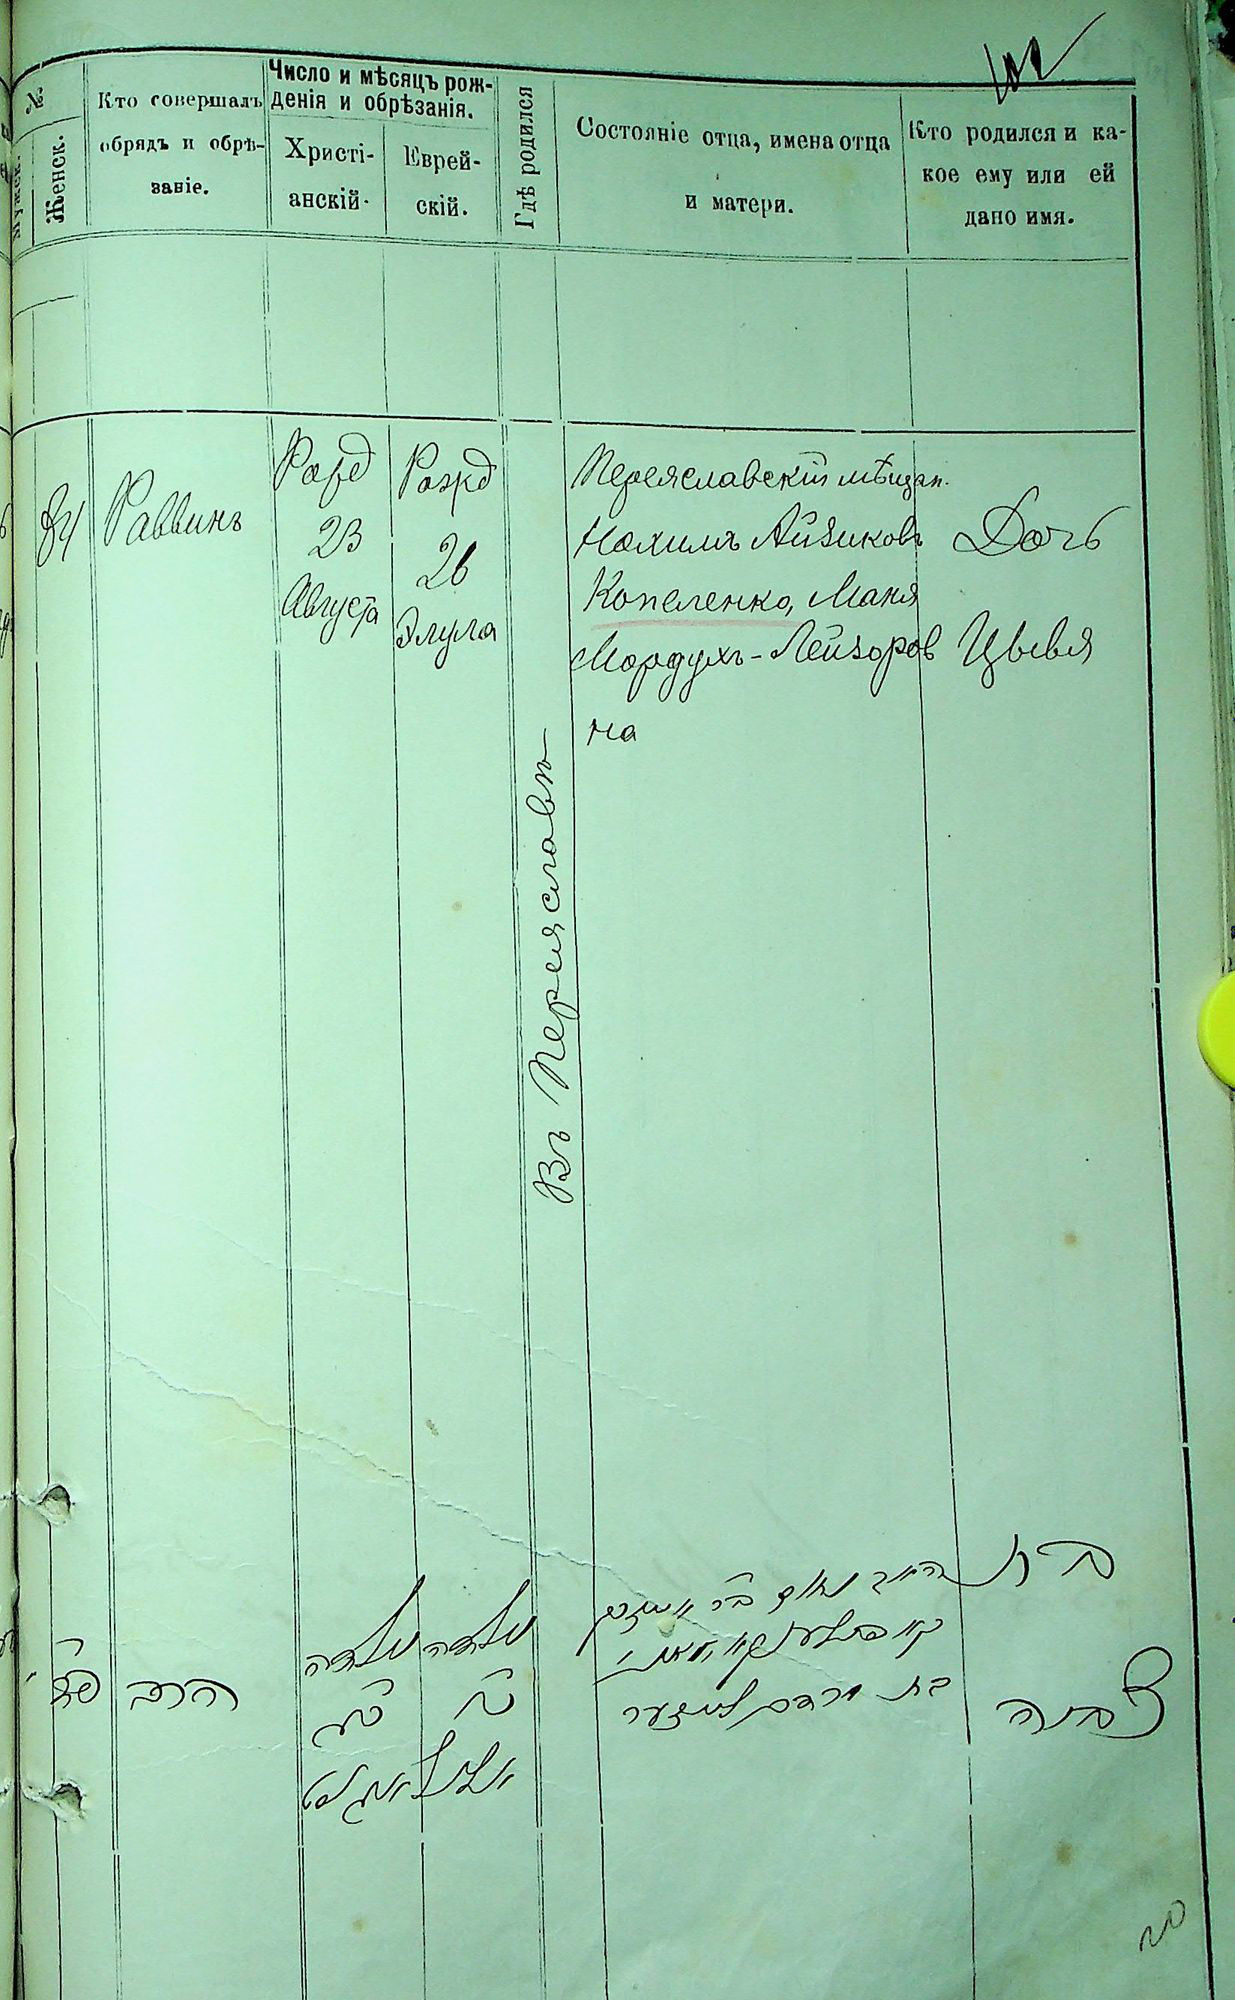 №
Мужск.
Женск.
Кто совершалъ
обрядъ и обрѣ-
заніе.
Число и мѣсяцъ рож-
денія и обрѣзанія.
Христі-
анскій.
Еврей-
скій.
Гдѣ родился
Состояніе отца, имена отца
и матери.
Кто родился и ка-
кое ему или ей
дано имя.
84
Раввинъ
Рожд
23
Августа
Рожд
26
Элула
Въ Переяславѣ
Переяславскій мѣщан.
Нохимъ Айзиковъ
Копеленко, Маня
Мордухъ-Лейзоров
на
Дочь
Цывя
פד
הרב
נולדה
כג
אויגוסט
נולדה
כו
אלול
האב נחום בר אייזיק
בת מרדכי ליעזער
בת
צביה